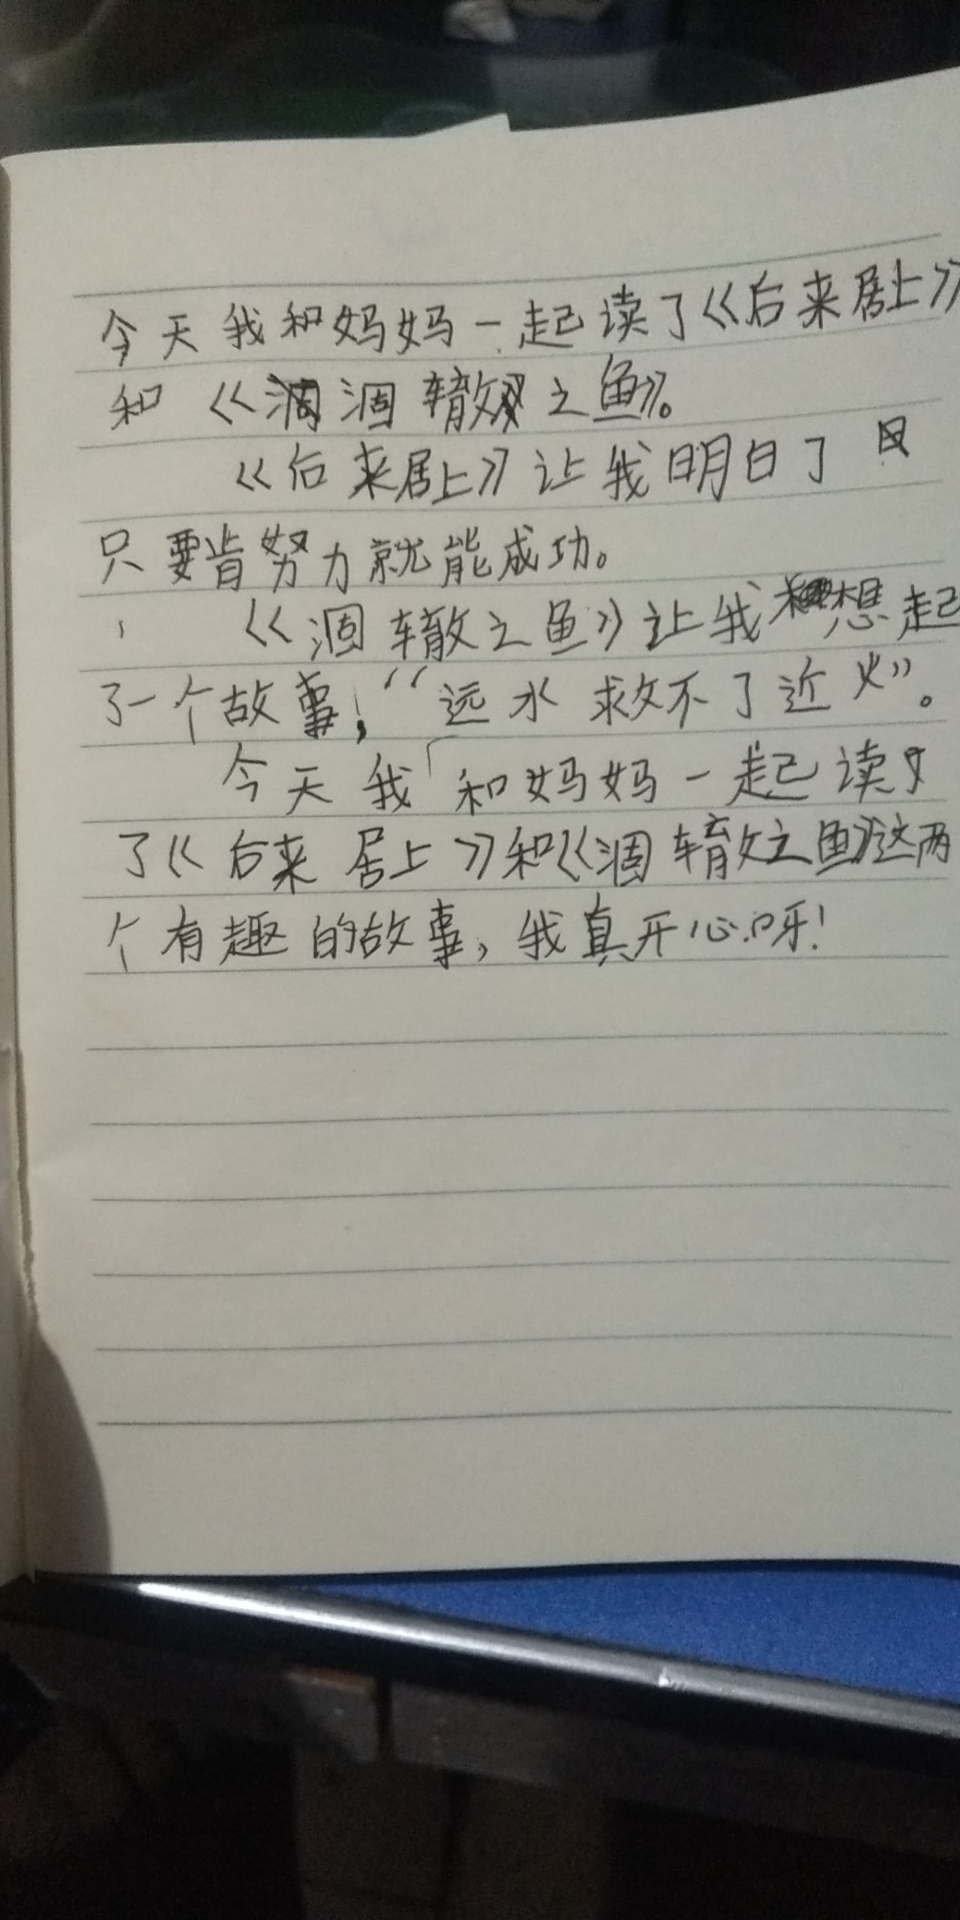 今天我和妈妈一起读了《后来居上》
和《涸辙之鱼》。
《后来居上》让我明白了
只要肯努力就能成功。
《涸辙之鱼》让我想起
了一个故事，“远水救不了近火”。
今天我和妈妈一起读
了《后来居上》和《涸辙之鱼》这两
个有趣的故事，我真开心呀！